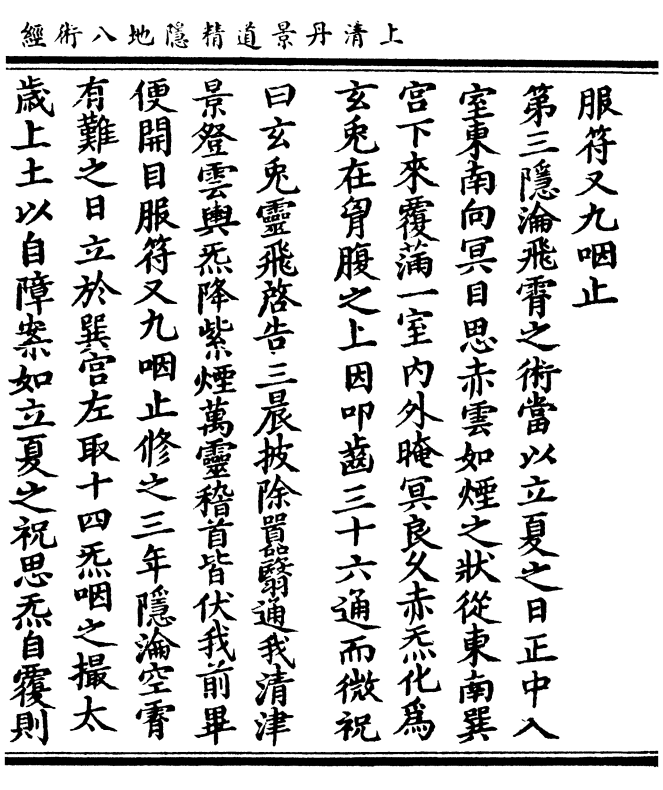 上清丹景道精隱地八術經
服符又九咽止
第三隱淪飛霄之術當以立夏之日正中入
室東南向冥目思赤雲如煙之狀從東南巽
宮下來覆滿一室內外晻冥良久赤炁化爲
玄兎在胷腹之上因叩齒三十六通而微祝
曰玄兎靈飛啓告三晨披除嚣翳通我清津
景登雲輿炁降紫煙萬靈稽首皆伏我前畢
便開目服符又九咽止修之三年隱淪空霄
有難之日立於巽宮左取十四炁咽之撮太
歲上土以自障案如立夏之祝思炁自覆則